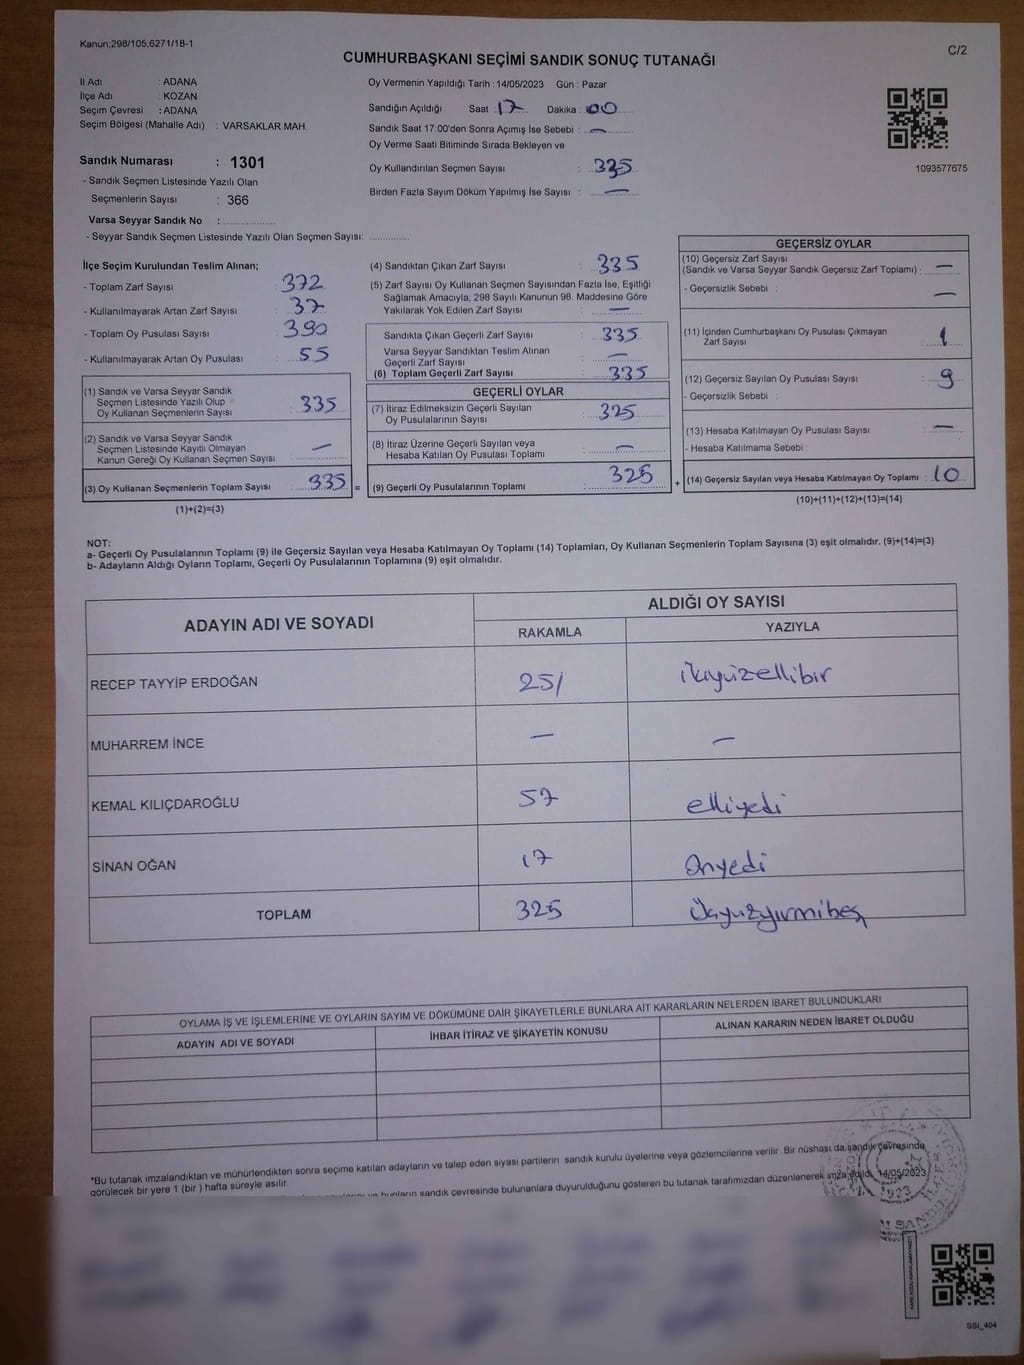 Kanun;298/105,6271/18-1
C/2
CUMHURBAŞKANI SEÇİMİ SANDIK SONUÇ TUTANAĞI
İl Adı : ADANA
İlçe Adı : KOZAN
Seçim Çevresi : ADANA
Seçim Bölgesi (Mahalle Adı) : VARSAKLAR MAH.
Sandık Numarası : 1301
- Sandık Seçmen Listesinde Yazılı Olan
Seçmenlerin Sayısı : 366
Varsa Seyyar Sandık No : ..............
- Seyyar Sandık Seçmen Listesinde Yazılı Olan Seçmen Sayısı: ..............
Oy Vermenin Yapıldığı Tarih : 14/05/2023 Gün : Pazar
Sandığın Açıldığı Saat : 17 Dakika : 00
Sandık Saat 17:00'den Sonra Açımış İse Sebebi : —
Oy Verme Saati Bitiminde Sırada Bekleyen ve
Oy Kullandırılan Seçmen Sayısı : 335
Birden Fazla Sayım Döküm Yapılmış İse Sayısı : —
1093577675
İlçe Seçim Kurulundan Teslim Alınan;
- Toplam Zarf Sayısı : 372
- Kullanılmayarak Artan Zarf Sayısı : 37
- Toplam Oy Pusulası Sayısı : 390
- Kullanılmayarak Artan Oy Pusulası : 55
(1) Sandık ve Varsa Seyyar Sandık
Seçmen Listesinde Yazılı Olup
Oy Kullanan Seçmenlerin Sayısı : 335
(2) Sandık ve Varsa Seyyar Sandık
Seçmen Listesinde Kayıtlı Olmayan
Kanun Gereği Oy Kullanan Seçmen Sayısı : —
(3) Oy Kullanan Seçmenlerin Toplam Sayısı : 335 =
(1)+(2)=(3)
(4) Sandıktan Çıkan Zarf Sayısı : 335
(5) Zarf Sayısı Oy Kullanan Seçmen Sayısından Fazla İse, Eşitliği
Sağlamak Amacıyla, 298 Sayılı Kanunun 98. Maddesine Göre
Yakılarak Yok Edilen Zarf Sayısı : —
Sandıkta Çıkan Geçerli Zarf Sayısı : 335
Varsa Seyyar Sandıktan Teslim Alınan
Geçerli Zarf Sayısı : —
(6) Toplam Geçerli Zarf Sayısı : 335
GEÇERLİ OYLAR
(7) İtiraz Edilmeksizin Geçerli Sayılan
Oy Pusulalarının Sayısı : 325
(8) İtiraz Üzerine Geçerli Sayılan veya
Hesaba Katılan Oy Pusulası Toplamı : —
(9) Geçerli Oy Pusulalarının Toplamı : 325 +
GEÇERSİZ OYLAR
(10) Geçersiz Zarf Sayısı
(Sandık ve Varsa Seyyar Sandık Geçersiz Zarf Toplamı) : —
- Geçersizlik Sebebi : —
(11) İçinden Cumhurbaşkanı Oy Pusulası Çıkmayan
Zarf Sayısı : 1
(12) Geçersiz Sayılan Oy Pusulası Sayısı : 9
- Geçersizlik Sebebi :
(13) Hesaba Katılmayan Oy Pusulası Sayısı : —
- Hesaba Katılmama Sebebi :
(14) Geçersiz Sayılan veya Hesaba Katılmayan Oy Toplamı : 10
(10)+(11)+(12)+(13)=(14)
NOT:
a- Geçerli Oy Pusulalarının Toplamı (9) ile Geçersiz Sayılan veya Hesaba Katılmayan Oy Toplamı (14) Toplamları, Oy Kullanan Seçmenlerin Toplam Sayısına (3) eşit olmalıdır. (9)+(14)=(3)
b- Adayların Aldığı Oyların Toplamı, Geçerli Oy Pusulalarının Toplamına (9) eşit olmalıdır.
ADAYIN ADI VE SOYADI
ALDIĞI OY SAYISI
RAKAMLA YAZIYLA
RECEP TAYYİP ERDOĞAN 251 ikiyüzellibir
MUHARREM İNCE — —
KEMAL KILIÇDAROĞLU 57 elliyedi
SİNAN OĞAN 17 Onyedi
TOPLAM 325 üçyüzyirmibeş
OYLAMA İŞ VE İŞLEMLERİNE VE OYLARIN SAYIM VE DÖKÜMÜNE DAİR ŞİKAYETLERLE BUNLARA AİT KARARLARIN NELERDEN İBARET BULUNDUKLARI
ADAYIN ADI VE SOYADI İHBAR İTİRAZ VE ŞİKAYETİN KONUSU ALINAN KARARIN NEDEN İBARET OLDUĞU
*Bu tutanak imzalandıktan ve mühürlendikten sonra seçime katılan adayların ve talep eden siyasi partilerin sandık kurulu üyelerine veya gözlemcilerine verilir. Bir nüshası da sandık çevresinde
görülecek bir yere 1 (bir ) hafta süreyle asılır.
bunların sandık çevresinde bulunanlara duyurulduğunu gösteren bu tutanak tarafımızdan düzenlenerek imza edildi. 14/05/2023
T.C.
1923
SSİ_404